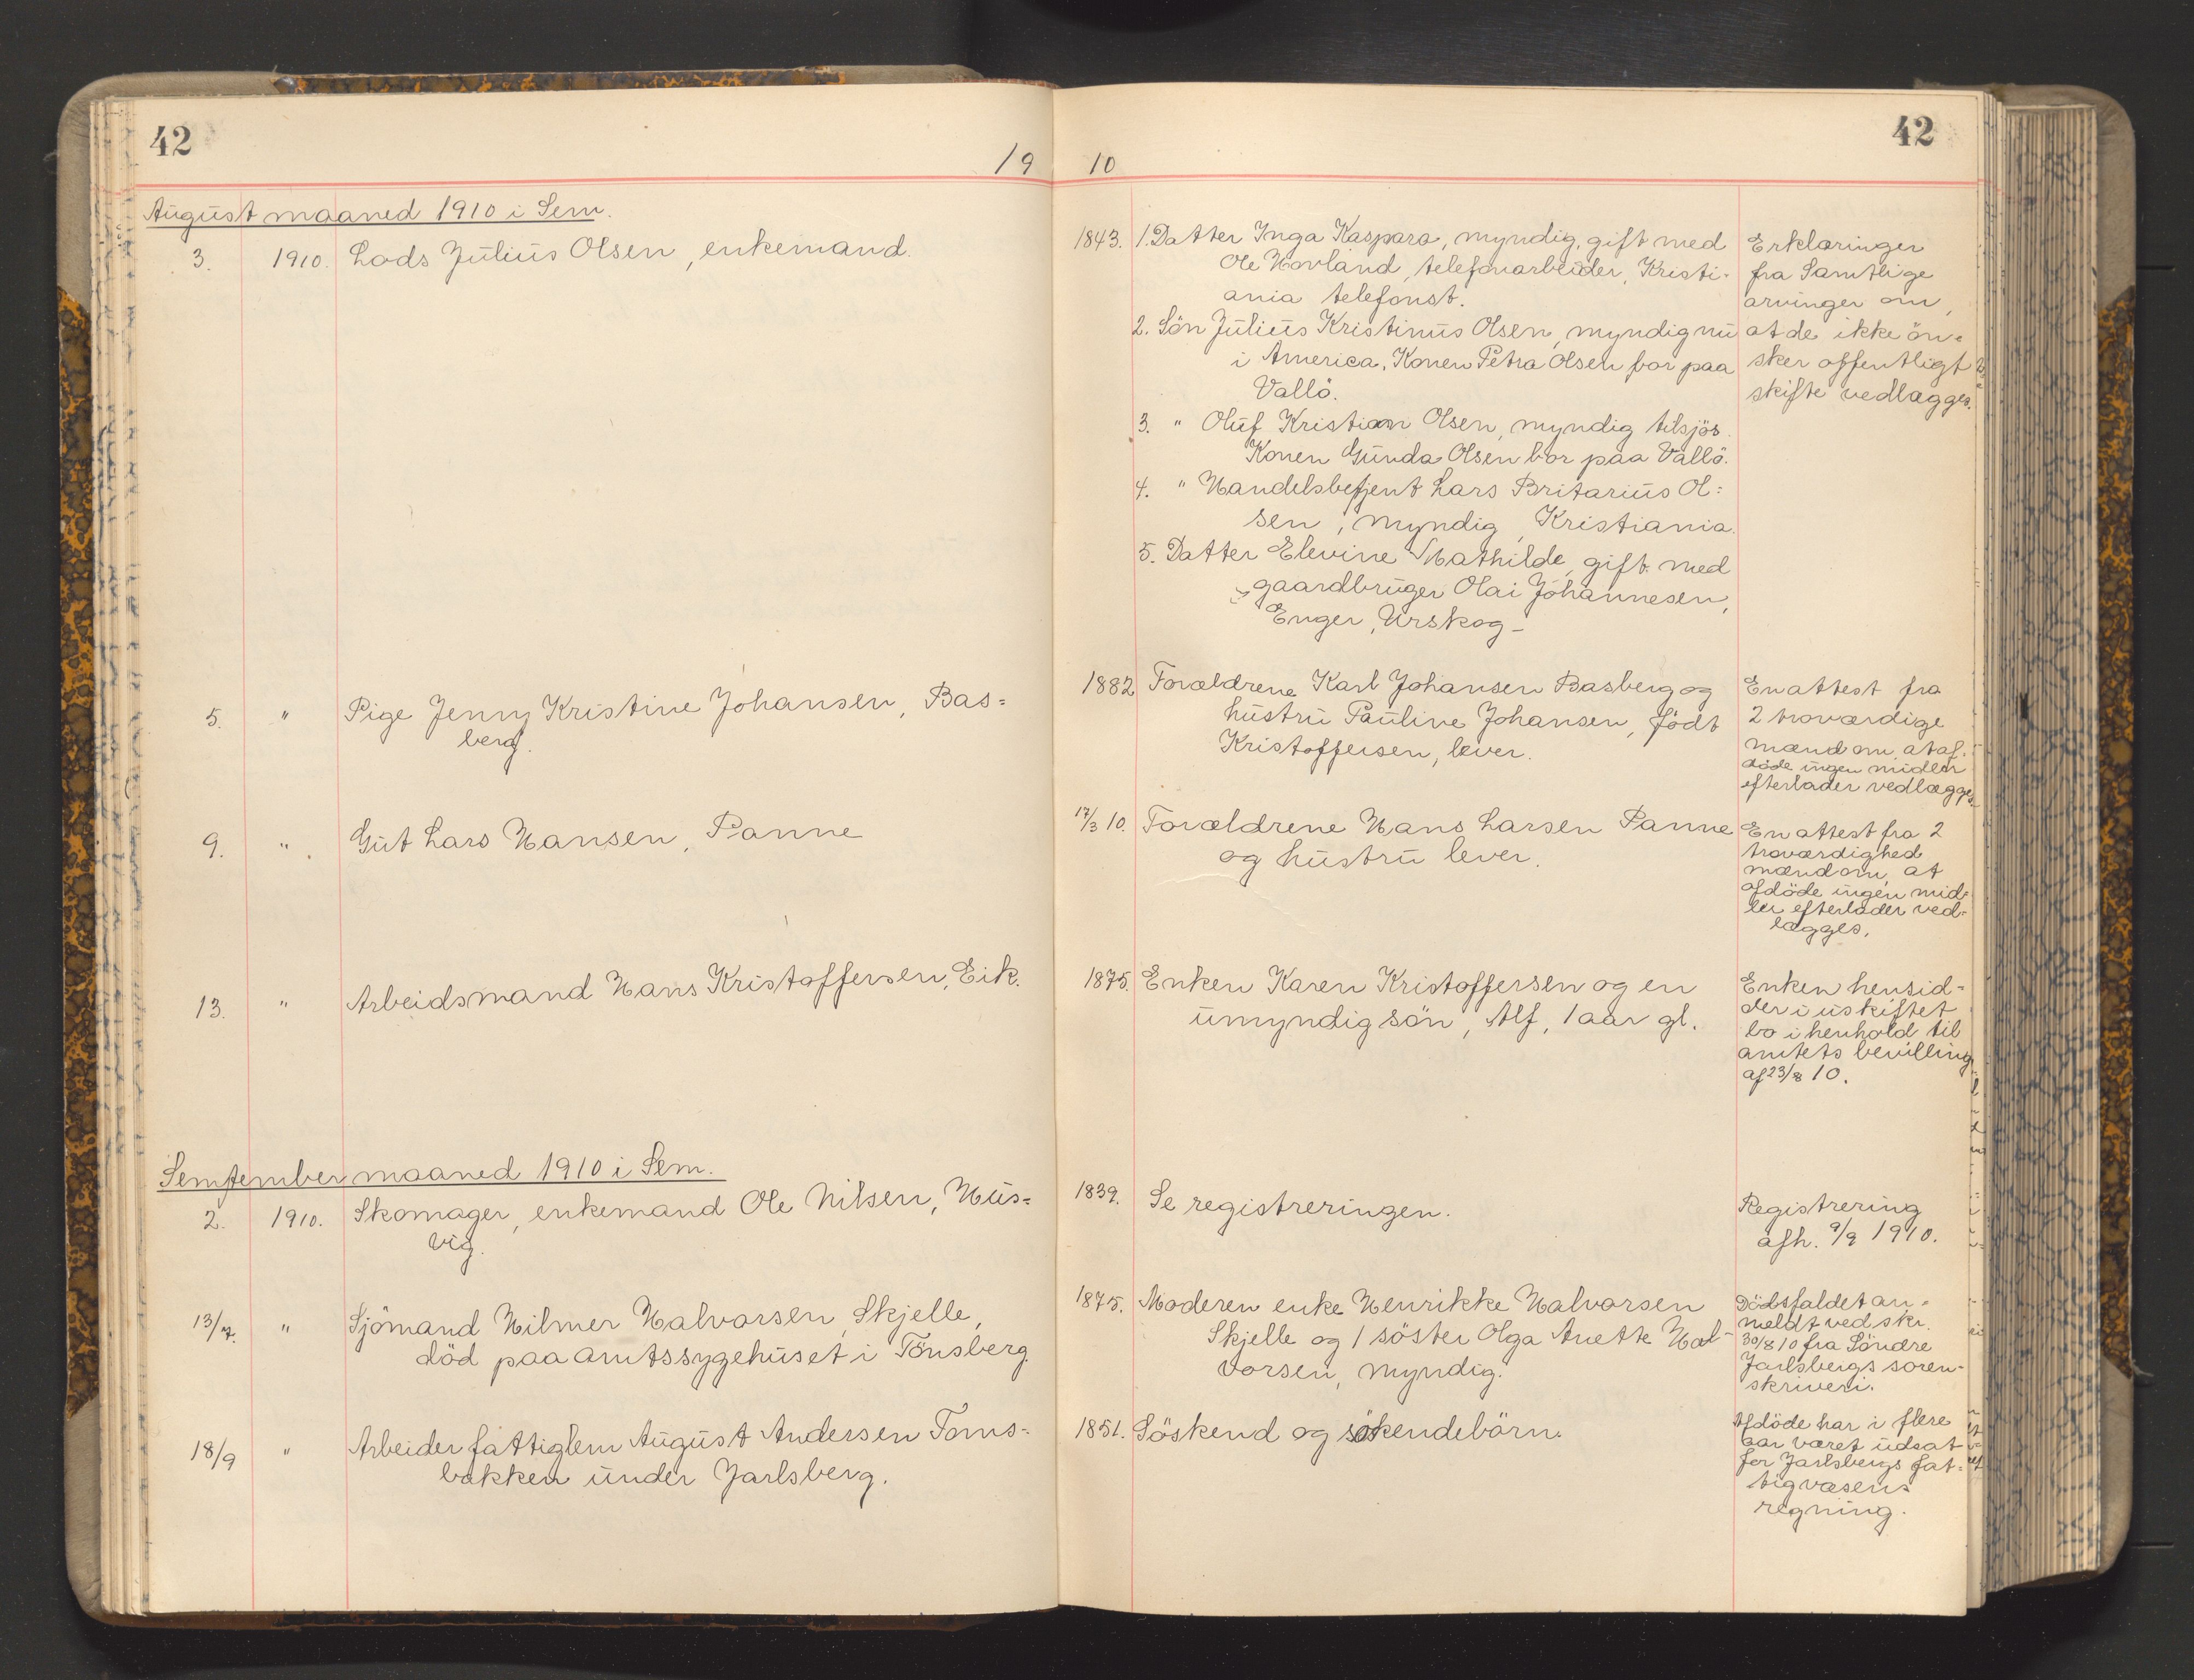 42
42
19 10
August maaned 1910 i Sem.
3. 1910. Lods Julius Olsen, enkemand.
1843. 1. Datter Inga Kaspara, myndig, gift med
Ole Hovland, telefonarbeider, Kristi-
ania telefonst.
2. Sön Julius Kristinus Olsen, myndig nu
i America. Konen Petra Olsen bor paa
Vallö.
3. " Oluf Kristian Olsen, myndig tilsjös.
Konen Gunda Olsen bor paa Vallö.
4. " Handelsbetjent Lars Britarius Ol=
sen, myndig, Kristiania.
5. Datter Elevine Mathilde, gift med
gaardbruger Olai Johannesen,
Enger, Urskog -
Erklæringer
fra Samtlige
arvinger om,
at de ikke ön=
sker offentligt
skifte vedlægges.
5. " Pige Jenny Kristine Johansen, Bas=
berg.
1882 Forældrene Karl Johansen Basberg og
hustru Pauline Johansen, födt
Kristoffersen, lever.
En attest fra
2 troværdige
mænd om at af-
döde ingen midler
efterlader vedlægges.
9. " . Gut Lars Hansen, Panne
17/3 10. Forældrene Hans Larsen Panne
og hustru lever.
En attest fra 2
troværdighed
mænd om, at
afdöde ingen mid=
ler efterlader ved-
lægges.
13. " Arbeidsmand Hans Kristoffersen, Eik.
1875. Enken Karen Kristoffersen og en
umyndig sön, Alf, 1 aar gl.
Enken hensid-
der i uskiftet
bo i henhold til
amtets bevilling
af 23/8 10.
Semtember maaned 1910 i Sem.
2. 1910. Skomager, enkemand Ole Nilsen, Hus=
vig.
1839. Se registreringen.
Registrering
afh. 9/9 1910.
13/7. " Sjömand Hilmer Halvorsen, Skjelle,
död paa amtssygehuset i Tönsberg.
1875. Moderen enke Henrikke Halvorsen
Skjelle og 1 söster Olga Anette Hal-
vorsen, myndig.
Dödsfaldet an=
meldt ved skr.
30/8 10 fra Söndre
Jarlsbergs soren-
skriveri.
18/9 " Arbeider fattiglem August Andersen Toms=
bakken under Jarlsberg.
1851. Söskend og sökendebörn.
Afdöde har i flere
aar været udsat
for Jarlsbergs fat=
tigvæsens
regning.